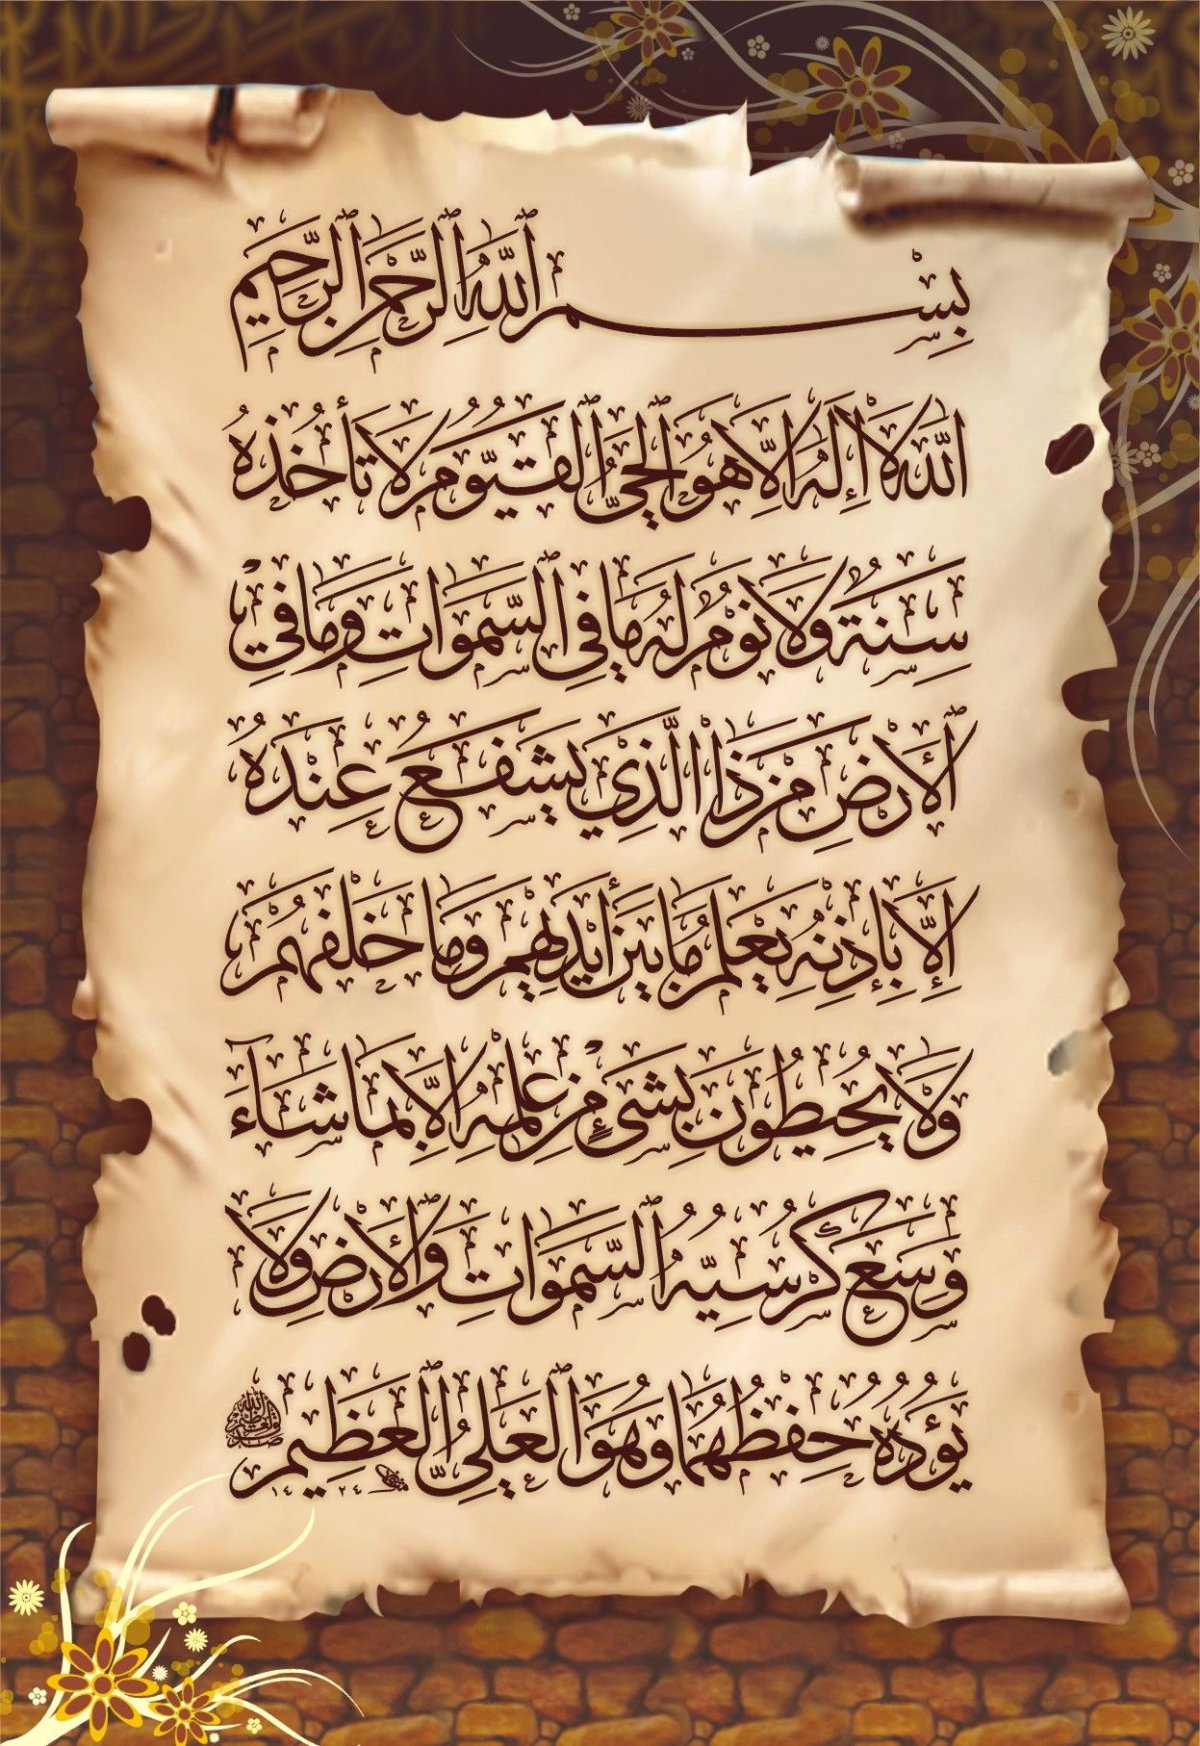 بِسْمِ ٱللَّهِ ٱلرَّحْمٰنِ ٱلرَّحِيمِ
اللّٰهُ لَا إِلٰهَ إِلَّا هُوَ ٱلْحَيُّ ٱلْقَيُّومُ لَا تَأْخُذُهُ
سِنَةٌ وَلَا نَوْمٌ لَهُ مَا فِي ٱلسَّمٰوَاتِ وَمَا فِي
ٱلْأَرْضِ مَنْ ذَا الَّذِي يَشْفَعُ عِنْدَهُ
إِلَّا بِإِذْنِهِ يَعْلَمُ مَا بَيْنَ أَيْدِيهِمْ وَمَا خَلْفَهُمْ
وَلَا يُحِيطُونَ بِشَيْءٍ مِنْ عِلْمِهِ إِلَّا بِمَا شَآءَ
وَسِعَ كُرْسِيُّهُ ٱلسَّمٰوَاتِ وَٱلْأَرْضَ وَلَا
يَؤُدُهُ حِفْظُهُمَا وَهُوَ ٱلْعَلِيُّ ٱلْعَظِيمُ
صدق الله العظيم
١٤٢٤